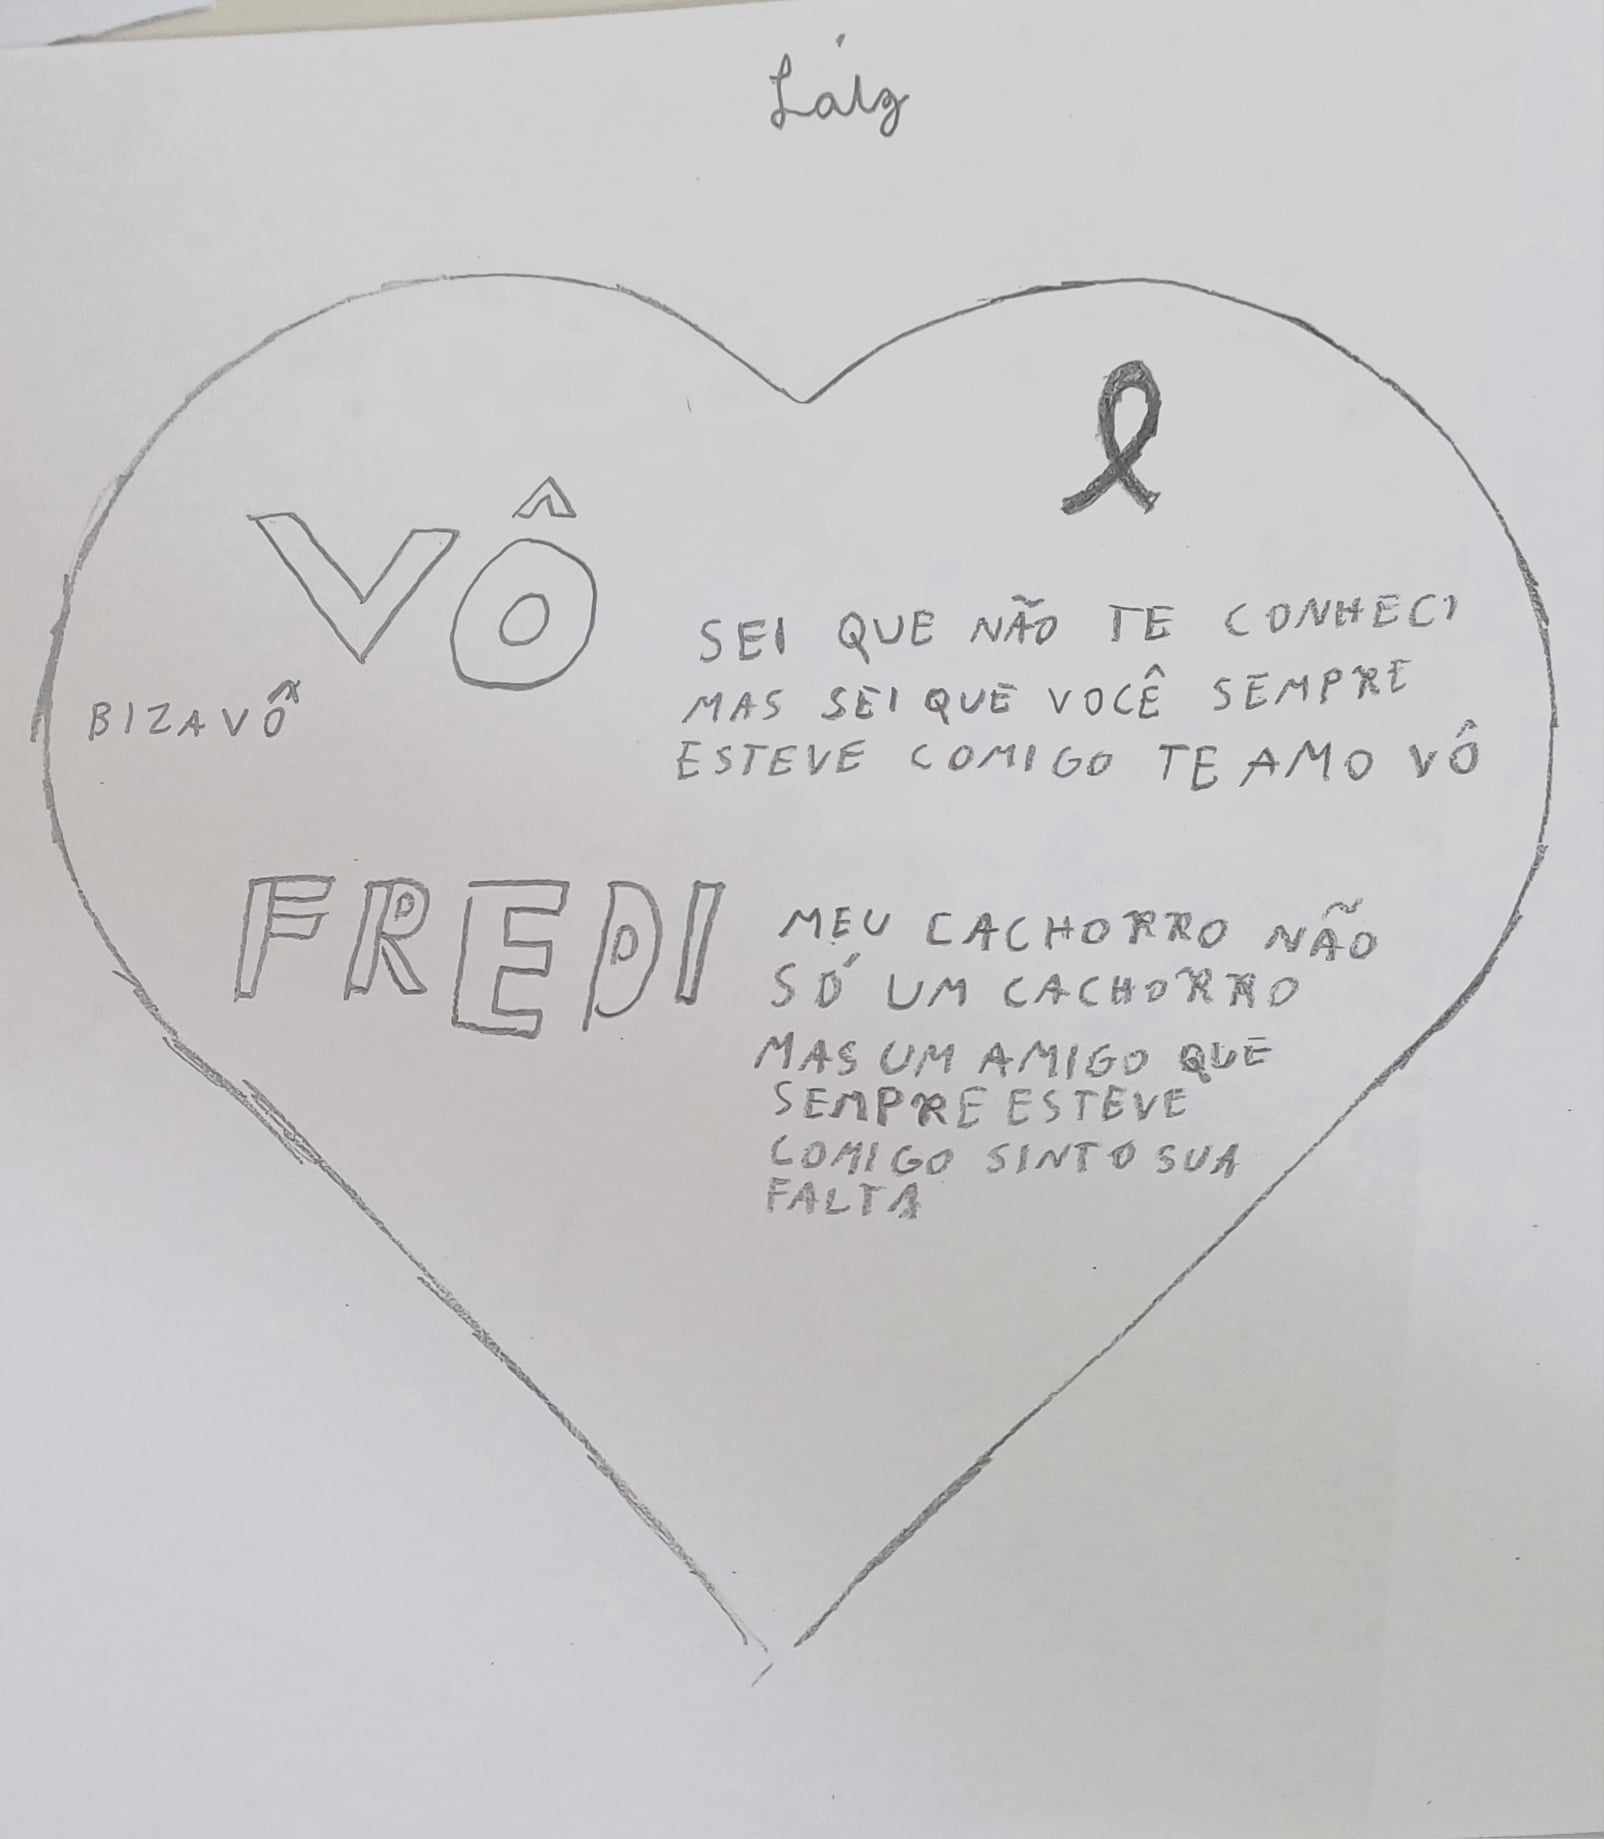 Láiz
VÔ
BIZAVÔ
SEI QUE NÃO TE CONHECI
MAS SEI QUE VOCÊ SEMPRE
ESTEVE COMIGO TE AMO VÔ
FREDI
MEU CACHORRO NÃO
SÓ UM CACHORRO
MAS UM AMIGO QUE
SEMPRE ESTEVE
COMIGO SINTO SUA
FALTA